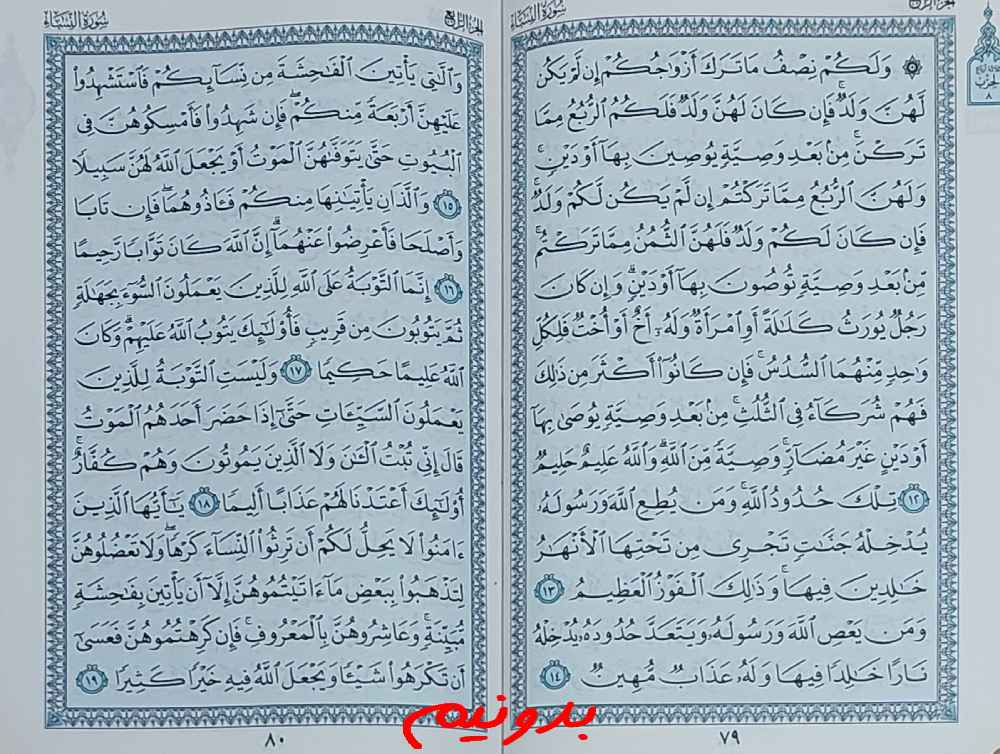 سُورَةُ النِّسَاء
الجزء الرابع
۞ وَلَكُمْ نِصْفُ مَا تَرَكَ أَزْوَٰجُكُمْ إِن لَّمْ يَكُن
لَّهُنَّ وَلَدٌۚ فَإِن كَانَ لَهُنَّ وَلَدٌ فَلَكُمُ ٱلرُّبُعُ مِمَّا
تَرَكْنَۚ مِنۢ بَعْدِ وَصِيَّةٍ يُوصِينَ بِهَآ أَوْ دَيْنٍۚ
وَلَهُنَّ ٱلرُّبُعُ مِمَّا تَرَكْتُمْ إِن لَّمْ يَكُن لَّكُمْ وَلَدٌۚ
فَإِن كَانَ لَكُمْ وَلَدٌ فَلَهُنَّ ٱلثُّمُنُ مِمَّا تَرَكْتُمۚ
مِّنۢ بَعْدِ وَصِيَّةٍ تُوصُونَ بِهَآ أَوْ دَيْنٍۗ وَإِن كَانَ
رَجُلٌ يُورَثُ كَلَٰلَةً أَوِ ٱمْرَأَةٌ وَلَهُۥٓ أَخٌ أَوْ أُخْتٌ فَلِكُلِّ
وَٰحِدٍ مِّنْهُمَا ٱلسُّدُسُۚ فَإِن كَانُوٓا۟ أَكْثَرَ مِن ذَٰلِكَ
فَهُمْ شُرَكَآءُ فِى ٱلثُّلُثِۚ مِنۢ بَعْدِ وَصِيَّةٍ يُوصَىٰ بِهَآ
أَوْ دَيْنٍ غَيْرَ مُضَآرٍّۚ وَصِيَّةً مِّنَ ٱللَّهِۗ وَٱللَّهُ عَلِيمٌ حَلِيمٌ
١٢ تِلْكَ حُدُودُ ٱللَّهِۚ وَمَن يُطِعِ ٱللَّهَ وَرَسُولَهُۥ
يُدْخِلْهُ جَنَّٰتٍ تَجْرِى مِن تَحْتِهَا ٱلْأَنْهَٰرُ
خَٰلِدِينَ فِيهَاۚ وَذَٰلِكَ ٱلْفَوْزُ ٱلْعَظِيمُ ١٣
وَمَن يَعْصِ ٱللَّهَ وَرَسُولَهُۥ وَيَتَعَدَّ حُدُودَهُۥ يُدْخِلْهُ
نَارًا خَٰلِدًا فِيهَا وَلَهُۥ عَذَابٌ مُّهِينٌ ١٤
٧٩
الجزء الرابع
سُورَةُ النِّسَاء
وَٱلَّٰتِى يَأْتِينَ ٱلْفَٰحِشَةَ مِن نِّسَآئِكُمْ فَٱسْتَشْهِدُوا۟
عَلَيْهِنَّ أَرْبَعَةً مِّنكُمْۖ فَإِن شَهِدُوا۟ فَأَمْسِكُوهُنَّ فِى
ٱلْبُيُوتِ حَتَّىٰ يَتَوَفَّىٰهُنَّ ٱلْمَوْتُ أَوْ يَجْعَلَ ٱللَّهُ لَهُنَّ سَبِيلًا
١٥ وَٱلَّذَانِ يَأْتِيَٰنِهَا مِنكُمْ فَـَٔاذُوهُمَاۖ فَإِن تَابَا
وَأَصْلَحَا فَأَعْرِضُوا۟ عَنْهُمَآۗ إِنَّ ٱللَّهَ كَانَ تَوَّابًا رَّحِيمًا
١٦ إِنَّمَا ٱلتَّوْبَةُ عَلَى ٱللَّهِ لِلَّذِينَ يَعْمَلُونَ ٱلسُّوٓءَ بِجَهَٰلَةٍ
ثُمَّ يَتُوبُونَ مِن قَرِيبٍ فَأُو۟لَٰٓئِكَ يَتُوبُ ٱللَّهُ عَلَيْهِمْۗ وَكَانَ
ٱللَّهُ عَلِيمًا حَكِيمًا ١٧ وَلَيْسَتِ ٱلتَّوْبَةُ لِلَّذِينَ
يَعْمَلُونَ ٱلسَّيِّـَٔاتِ حَتَّىٰٓ إِذَا حَضَرَ أَحَدَهُمُ ٱلْمَوْتُ
قَالَ إِنِّى تُبْتُ ٱلْـَٰٔنَ وَلَا ٱلَّذِينَ يَمُوتُونَ وَهُمْ كُفَّارٌۚ
أُو۟لَٰٓئِكَ أَعْتَدْنَا لَهُمْ عَذَابًا أَلِيمًا ١٨ يَٰٓأَيُّهَا ٱلَّذِينَ
ءَامَنُوا۟ لَا يَحِلُّ لَكُمْ أَن تَرِثُوا۟ ٱلنِّسَآءَ كَرْهًاۖ وَلَا تَعْضُلُوهُنَّ
لِتَذْهَبُوا۟ بِبَعْضِ مَآ ءَاتَيْتُمُوهُنَّ إِلَّآ أَن يَأْتِينَ بِفَٰحِشَةٍ
مُّبَيِّنَةٍۚ وَعَاشِرُوهُنَّ بِٱلْمَعْرُوفِۚ فَإِن كَرِهْتُمُوهُنَّ فَعَسَىٰٓ
أَن تَكْرَهُوا۟ شَيْـًٔا وَيَجْعَلَ ٱللَّهُ فِيهِ خَيْرًا كَثِيرًا ١٩
٨٠
بدونیم